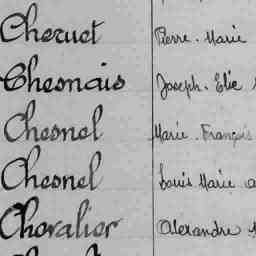 Cheruet Pierre. Marie
Chesnais Joseph. Elie
Chesnel Marie. François
Chesnel Louis Marie
Chevalier Alexandre